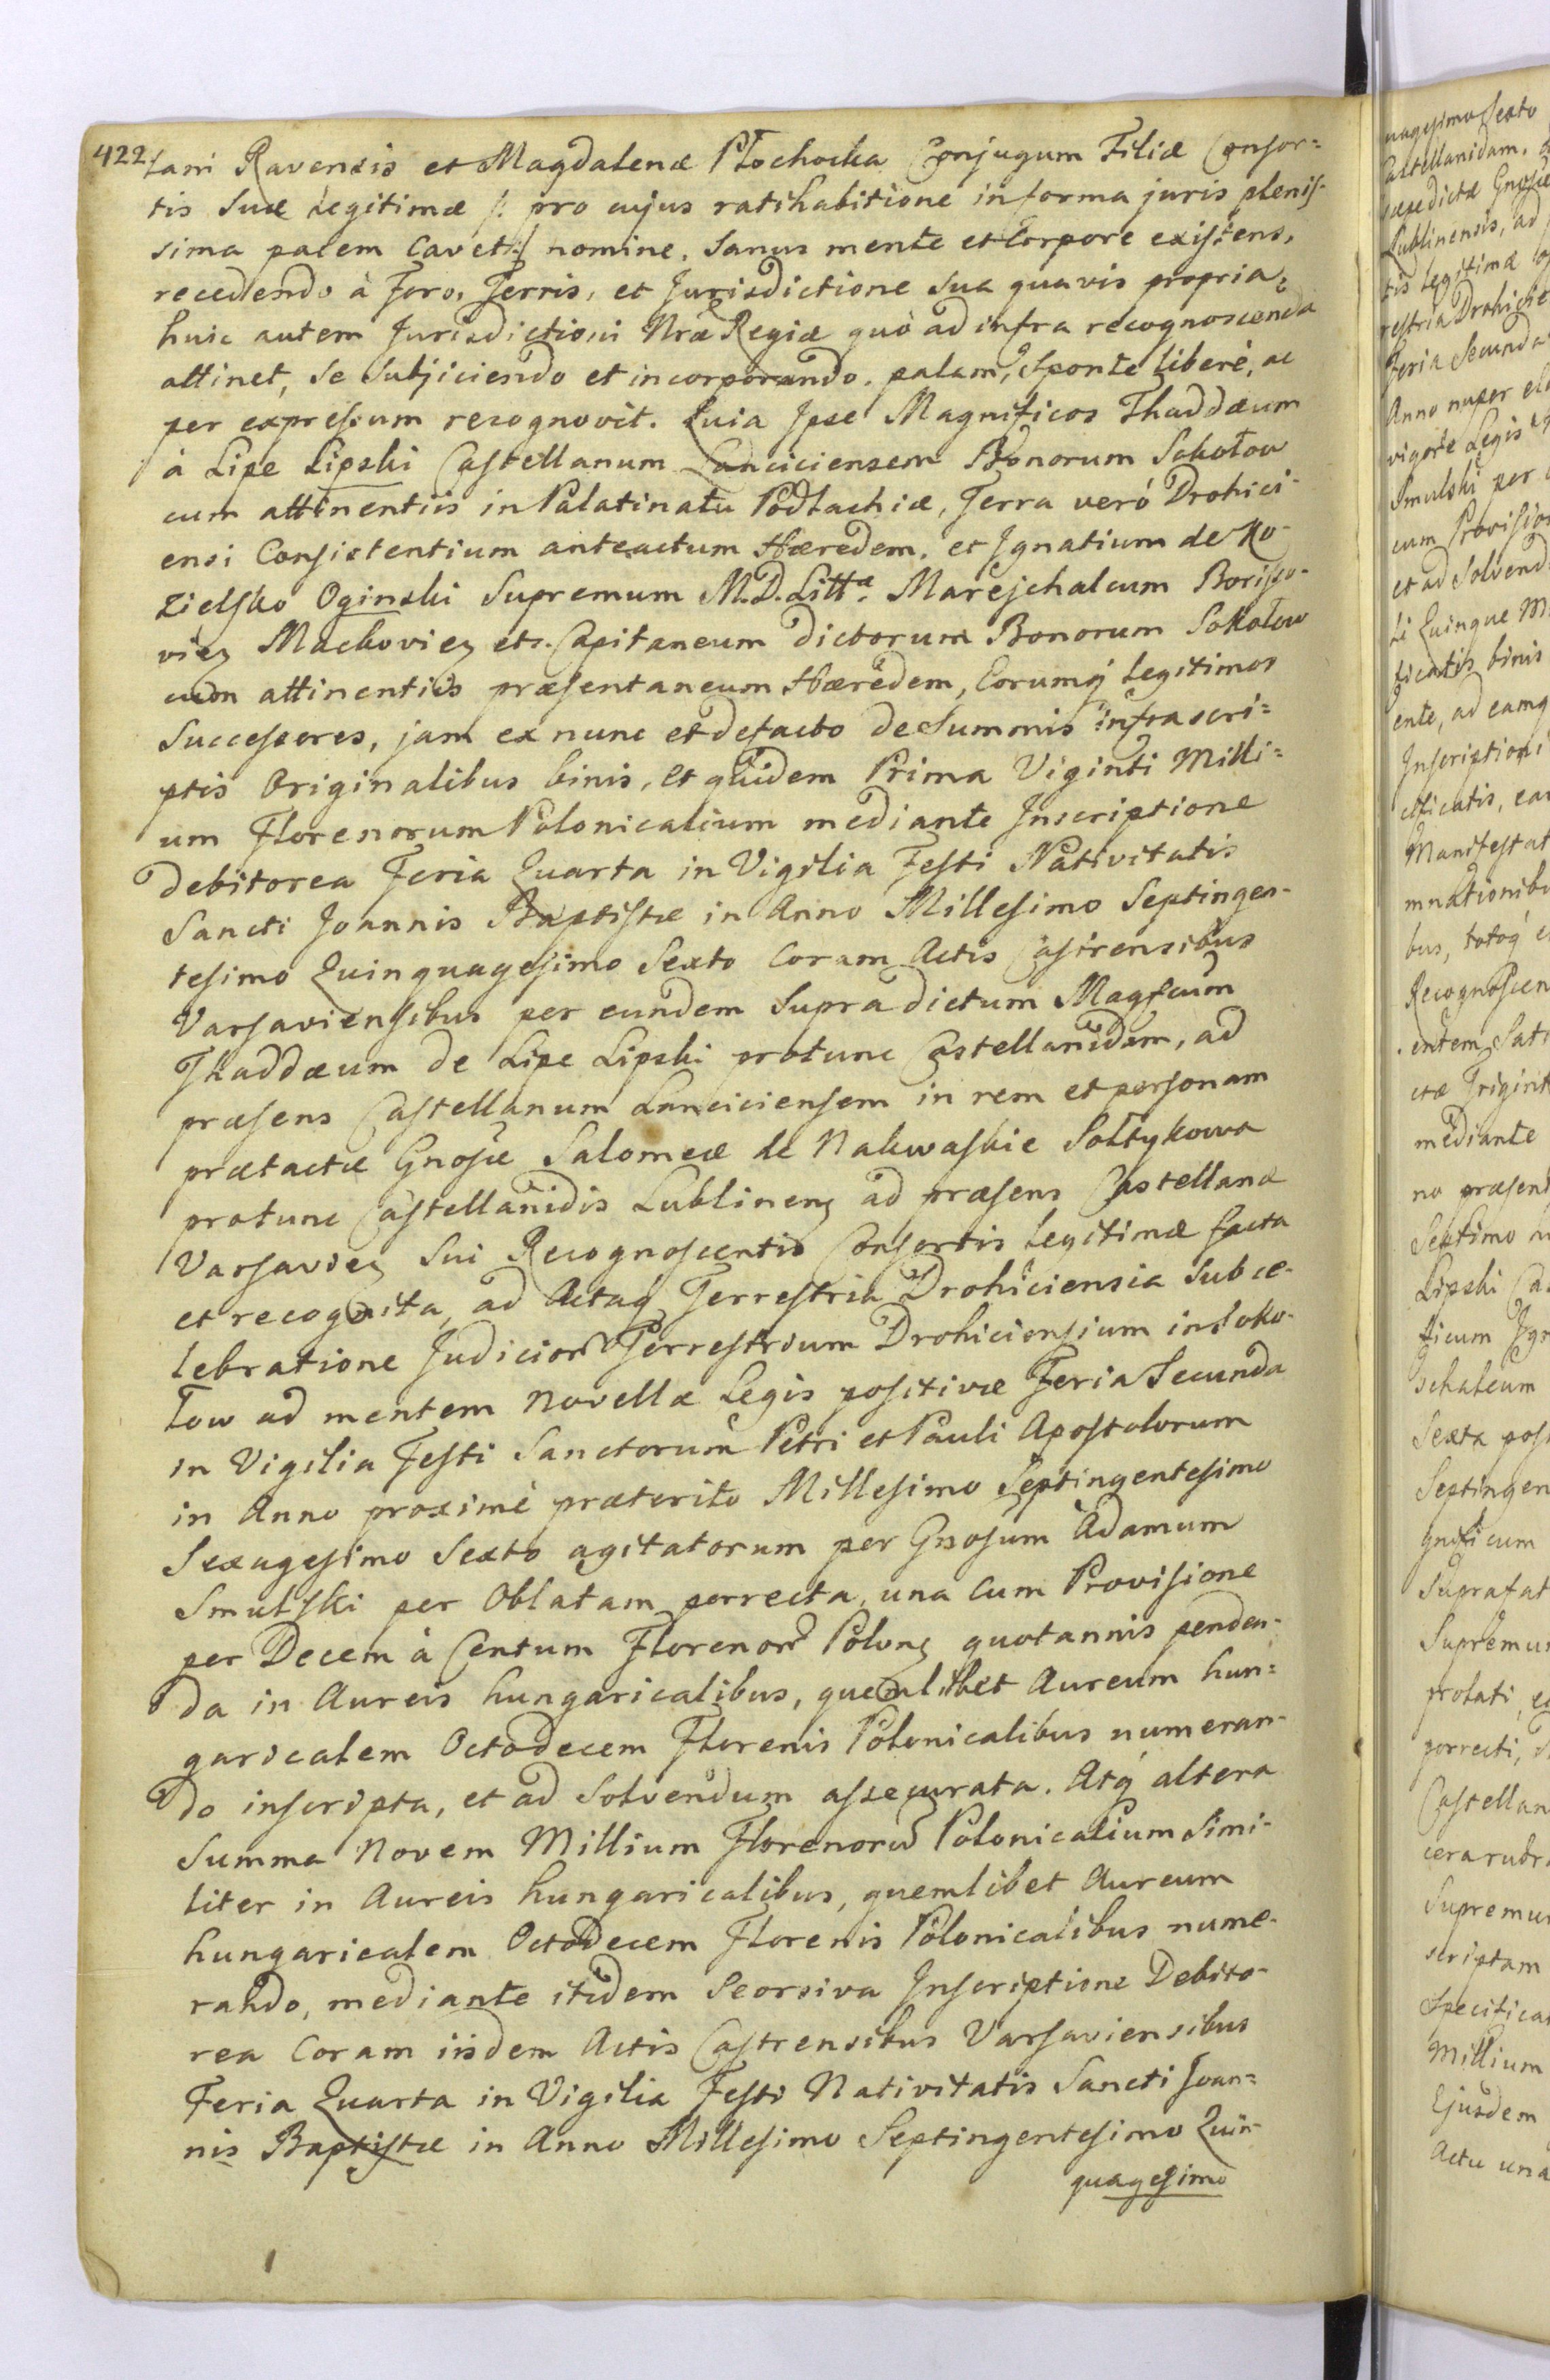 422
tani Ravensis et Magdalenæ Płochocka Conjugum Filiæ Consor=
tis Suæ Legitimæ /: pro cujus ratihabitione in forma juris plenis-
sima palem Cavet :/ nomine, Sanus mente et Corpore existens,
recedendo à Foro, Terris, et Jurisdictione Sua quavis propria,
huic autem Jurisdictioni Nræ Regiæ quò ad infra recognoscenda
attinet, Se Subjiciendo et incorporando, palam, Sponte Liberè, ac
per expressum recognovit. Quia Ipse Magnificos Thaddæum
à Lipe Lipski Castellanum Lanciciensem Bonorum Sokołow
cum attinentiis in Palatinatu Podlachiæ, Terra verò Drohici-
ensi Consistentium anteactum Hæredem, et Ignatium de Ko-
zielsko Oginski Supremum M.D. Littæ. Mareschalcum Borisso-
vien Mackovien etc. Capitaneum dictorum Bonorum Sokołow
cum attinentiis præsentaneum Hæredem, Eorumq́ Legitimos
Successores, jam ex nunc et de facto de Summis infrascri=
ptis Originalibus binis, et quidem Prima Viginti Milli=
um Florenorum Polonicalium mediante Inscriptione
Debitorea Feria Quarta in Vigilia Festi Nativitatis
Sancti Joannis Baptistæ in Anno Millesimo Septingen-
tesimo Quinquagesimo Sexto Coram Actis Castrensibus
Varsaviensibus per eundem Supradictum Magficum
Thaddæum de Lipe Lipski protunc Castellanidem, ad
præsens Castellanum Lanciciensem in rem et personam
prætactæ Gnosæ Salomeæ de Nakwaskie Sołtykowa
protunc Castellanidis Lublinen ad præsens Castellanæ
Varsavien Sui Recognoscentis Consortis Legitimæ facta
et recognita, ad Actaq́ Terrestria Drohiciensia Sub ce-
lebratione Judicior Terrestrium Drohiciensium in Soko-
łow ad mentem Novellæ Legis positivæ Feria Secunda
in Vigilia Festi Sanctorum Petri et Pauli Apostolorum
in Anno proximè præterito Millesimo Septingentesimo
Sexagesimo Sexto agitatorum per Gnosum Adamum
Smulski per Oblatam porrecta, una Cum Provisione
per Decem à Centum Florenor Polon quotannis penden-
da in Aureis hungaricalibus, quemlibet Aureum hun=
garicalem Octodecem Florenis Polonicalibus numeran-
do inscripta, et ad Solvendum assecurata. Atq́ altera
Summa Novem Millium Florenorum Polonicalium Simi-
liter in Aureis hungaricalibus, quemlibet Aureum
hungaricalem Octodecem Florenis Polonicalibus nume-
rando, mediante itidem Seorsiva Inscriptione Debito-
rea Coram iisdem Actis Castrensibus Varsaviensibus
Feria Quarta in Vigilia Festi Nativitatis Sancti Joan=
nis Baptistæ in Anno Millesimo Septingentesimo Quin-
quagesimo